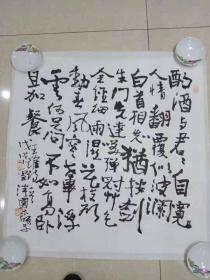 酌酒与君々自寬
人情翻覆似波澜
白首相知猶按剑
朱门先達笑弹冠草色
全经細雨湿花枝欲
動春风寒世事浮
雲何足问不如高卧
且加餐
王維詩
戊戌